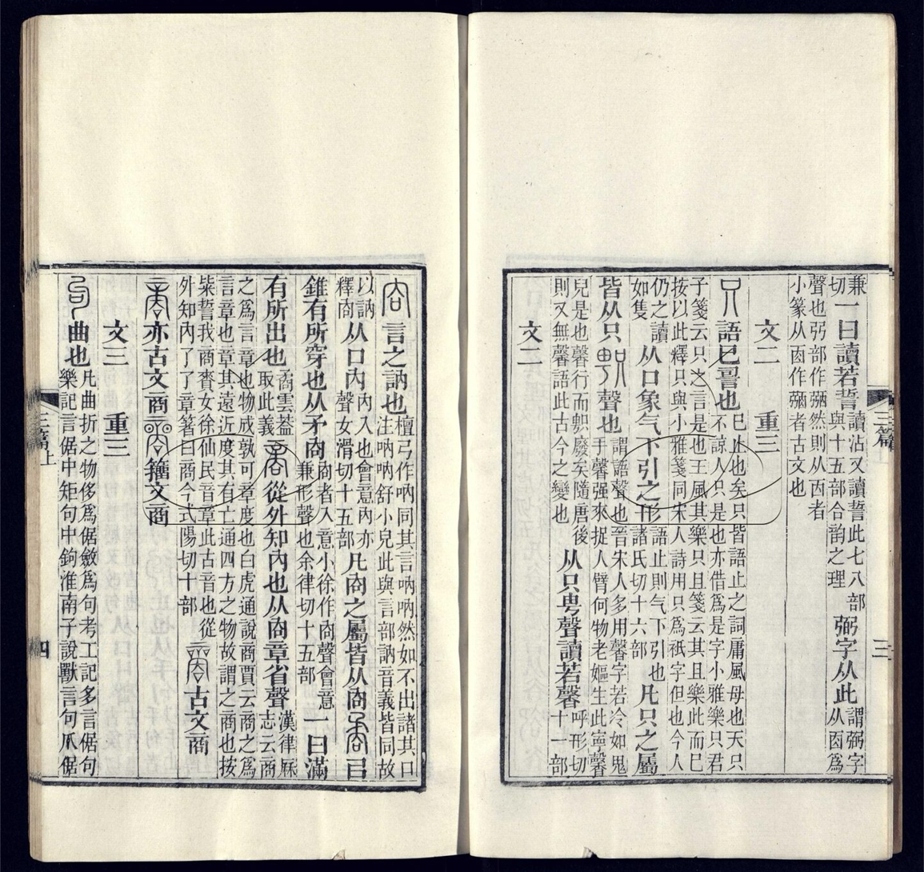 兼切一曰讀若誓讀沾又讀誓此七八部與十五部合韵之理弼字从此謂弼字从㐁爲
聲也弼部作𢐀然則从㐁者小篆从㐁作𢐀者古文也
文二 重三
只語巳䛐也巳止也矣只皆語止之詞庸風母也天只不諒人只是也亦借爲是字小雅樂只君
子箋云只之言是也王風其樂只且箋云其且樂此而巳按以此釋只與小雅箋同宋人詩用只爲祇字但也今人
仍之讀如隻从口象气下引之形語止則气下引也諸氏切十六部凡只之屬
皆从只𠷓聲也謂語聲也晉宋人多用馨字若冷如鬼手馨强來捉人臂何物老嫗生此寧馨
兒是也馨行而𠷓廢矣隨唐後則又無馨語此古今之變也从只甹聲讀若馨呼形切十一部
文二
三篇上
三
㕯言之訥也檀弓作吶同其言吶吶然如不出諸其口注吶吶舒小皃此與言部訥音義皆同故
以訥釋㕯从口内内入也會意内亦聲女滑切十五部凡㕯之屬皆从㕯矞㠯
錐有所穿也从矛㕯㕯者入意小徐作㕯聲會意兼形聲也余律切十五部一曰滿
有所出也矞雲葢取此義商從外知内也从㕯章省聲漢律厤志云商
之爲言章也物成孰可章度也白虎通說商賈云商之爲言章也章其遠近度其有亡通四方之物故謂之商也按
柴誓我商賚女徐仙民音章此古音也從外知内了了章箸曰商今式陽切十部𠾃古文商
𠹧亦古文商𥊽籒文商
文三 重三
句曲也凡曲折之物侈爲倨斂爲句考工記多言倨句樂記言倨中矩句中鉤淮南子說獸言句爪倨
三篇上
四